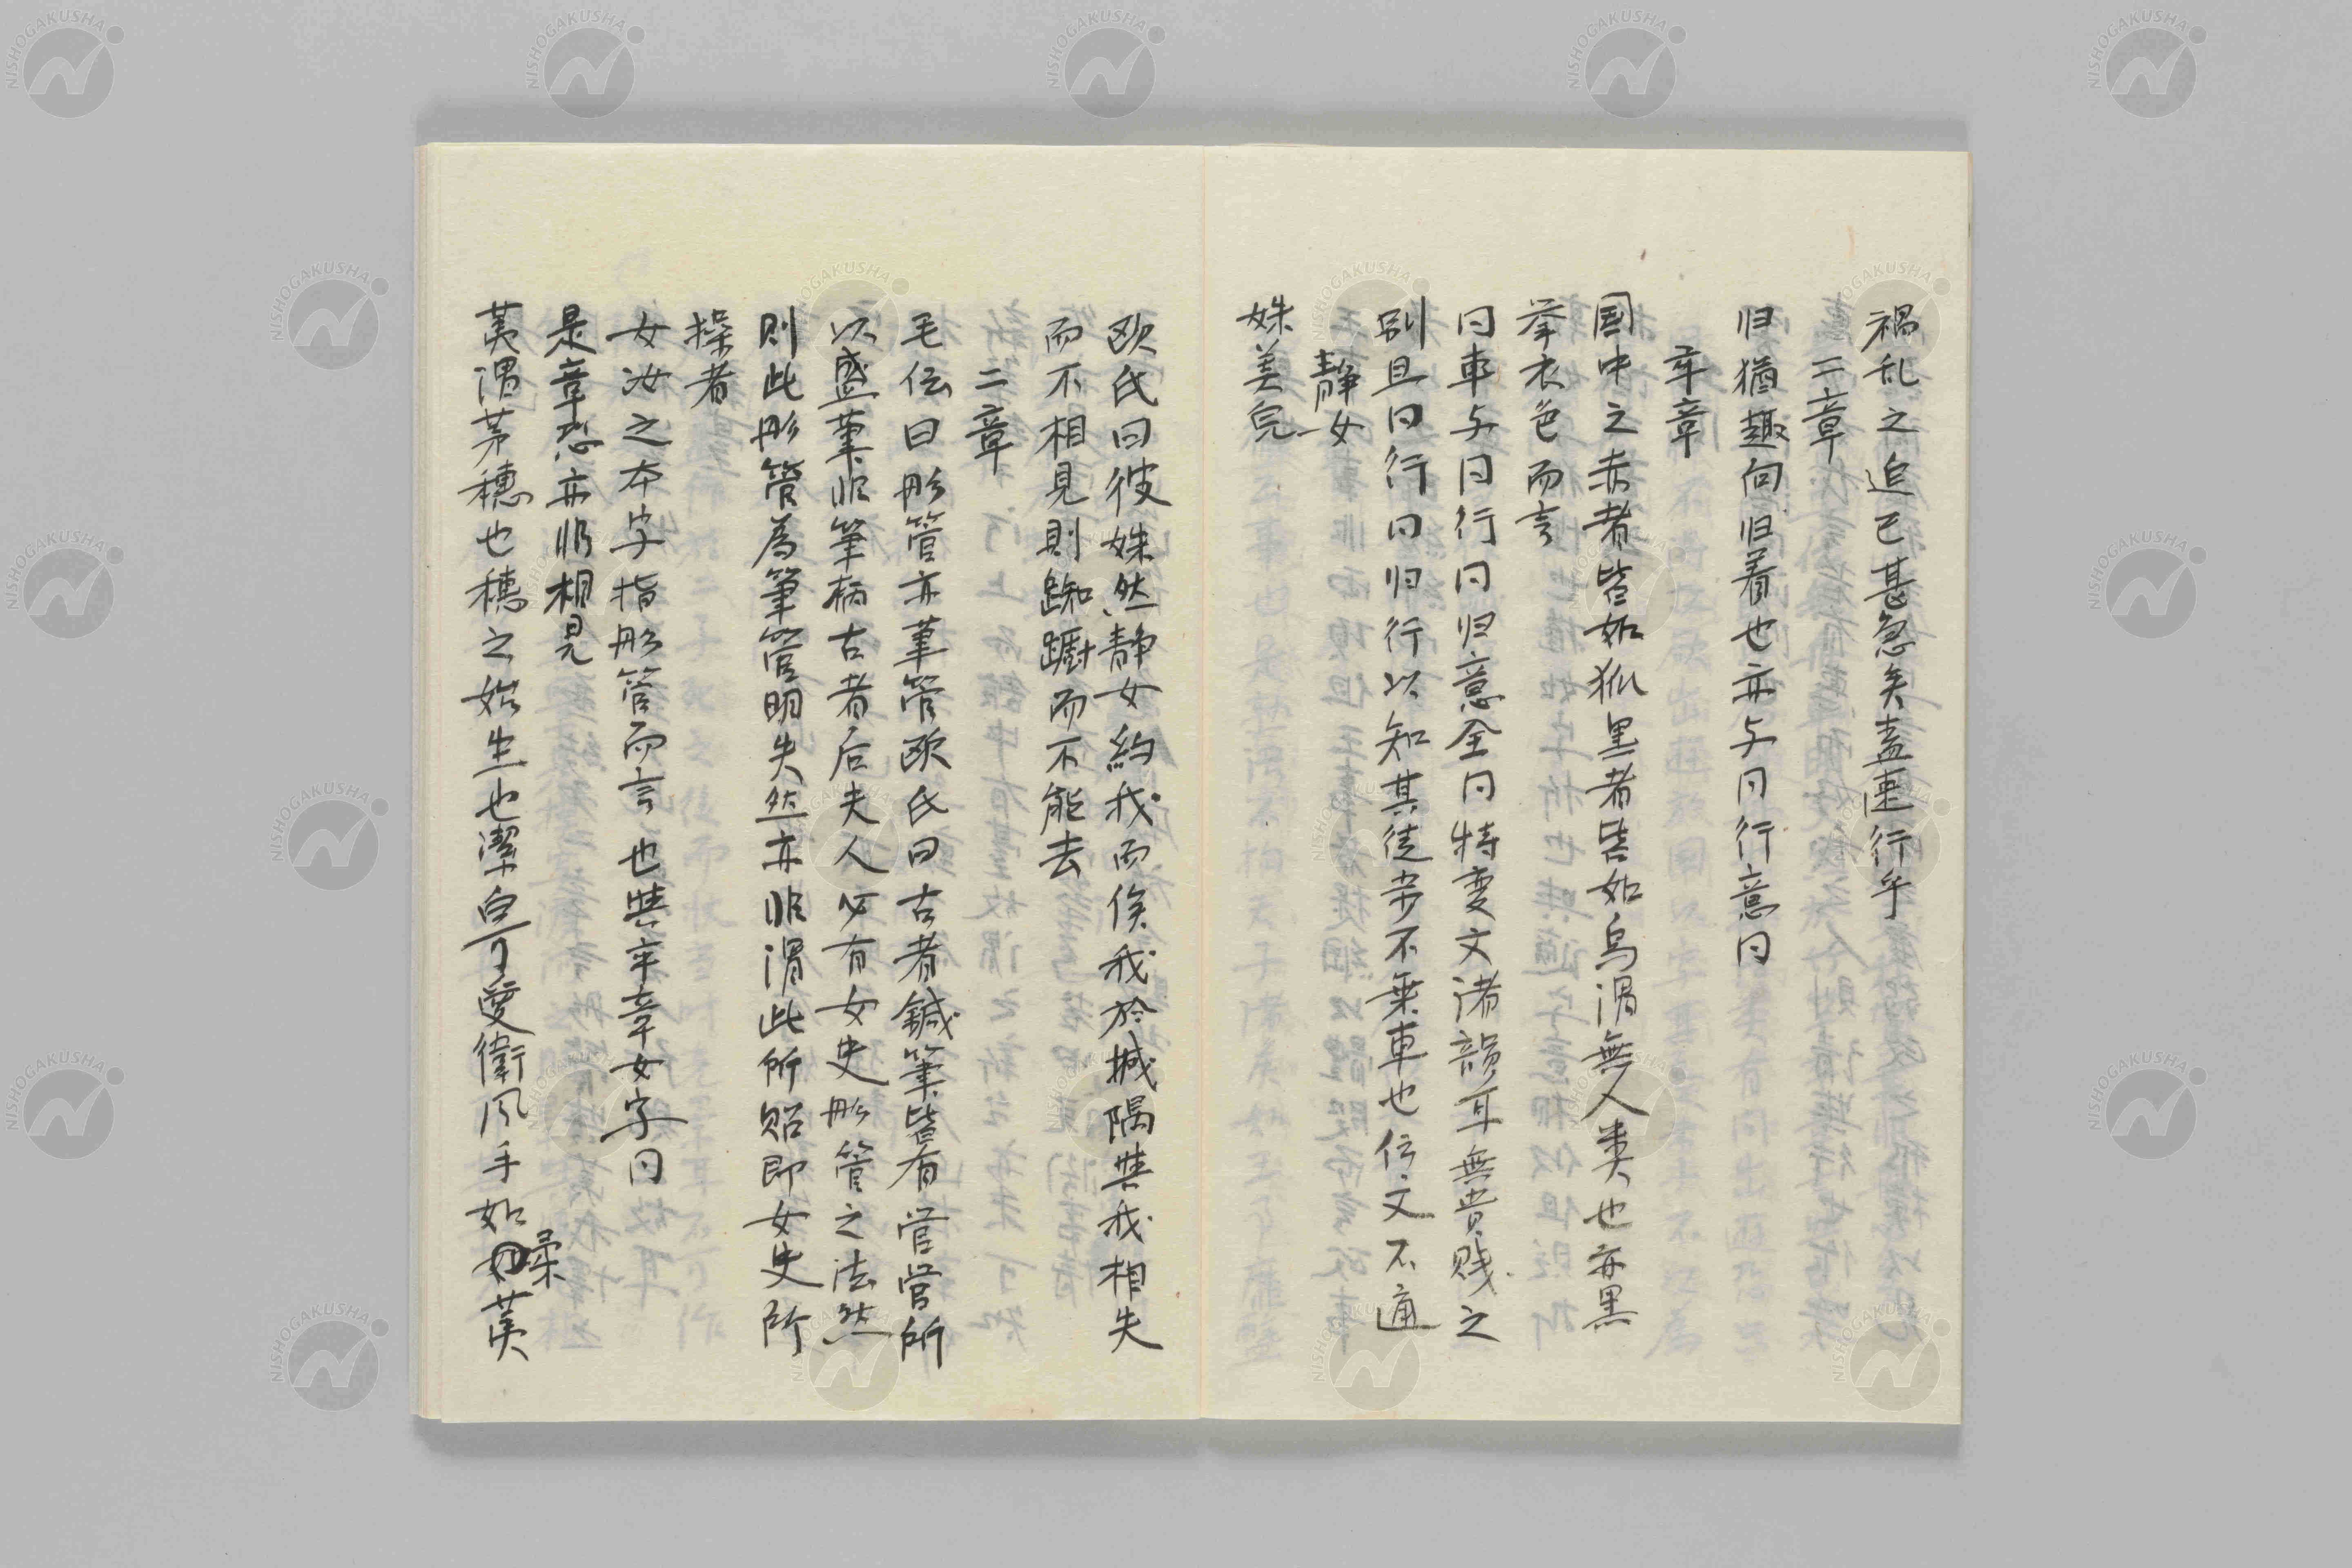 禍乱之迫已甚急矣盍速行乎
二章
归猶趣向归着也亦与同行意同
卒章
国中之赤者皆如狐黒者皆如烏謂無人类也亦黒
举衣色而言
同車与同行同归意全同特变文渚韻耳無貴賎之
别且同行同归行以知其徒歩不乗車也伝文不通
静女
姝美皃
欧氏曰彼姝然静女約我而俟我於城隅與我相失
而不相見則踟蹰而不能去
二章
毛伝曰彤管亦筆管欧氏曰古者鍼筆皆有管管所
以盛筆非筆柄古者后夫人必有女史彤管之法然
則此彤管為筆管明矢然亦非謂此所貽即女史所
操者
女汝之本字指彤管而言也與卒章女字同
是章恐亦非相見
荑謂茅穗也穗之始生也潔白可愛衛風手如柔荑
NISHOGAKUSHA